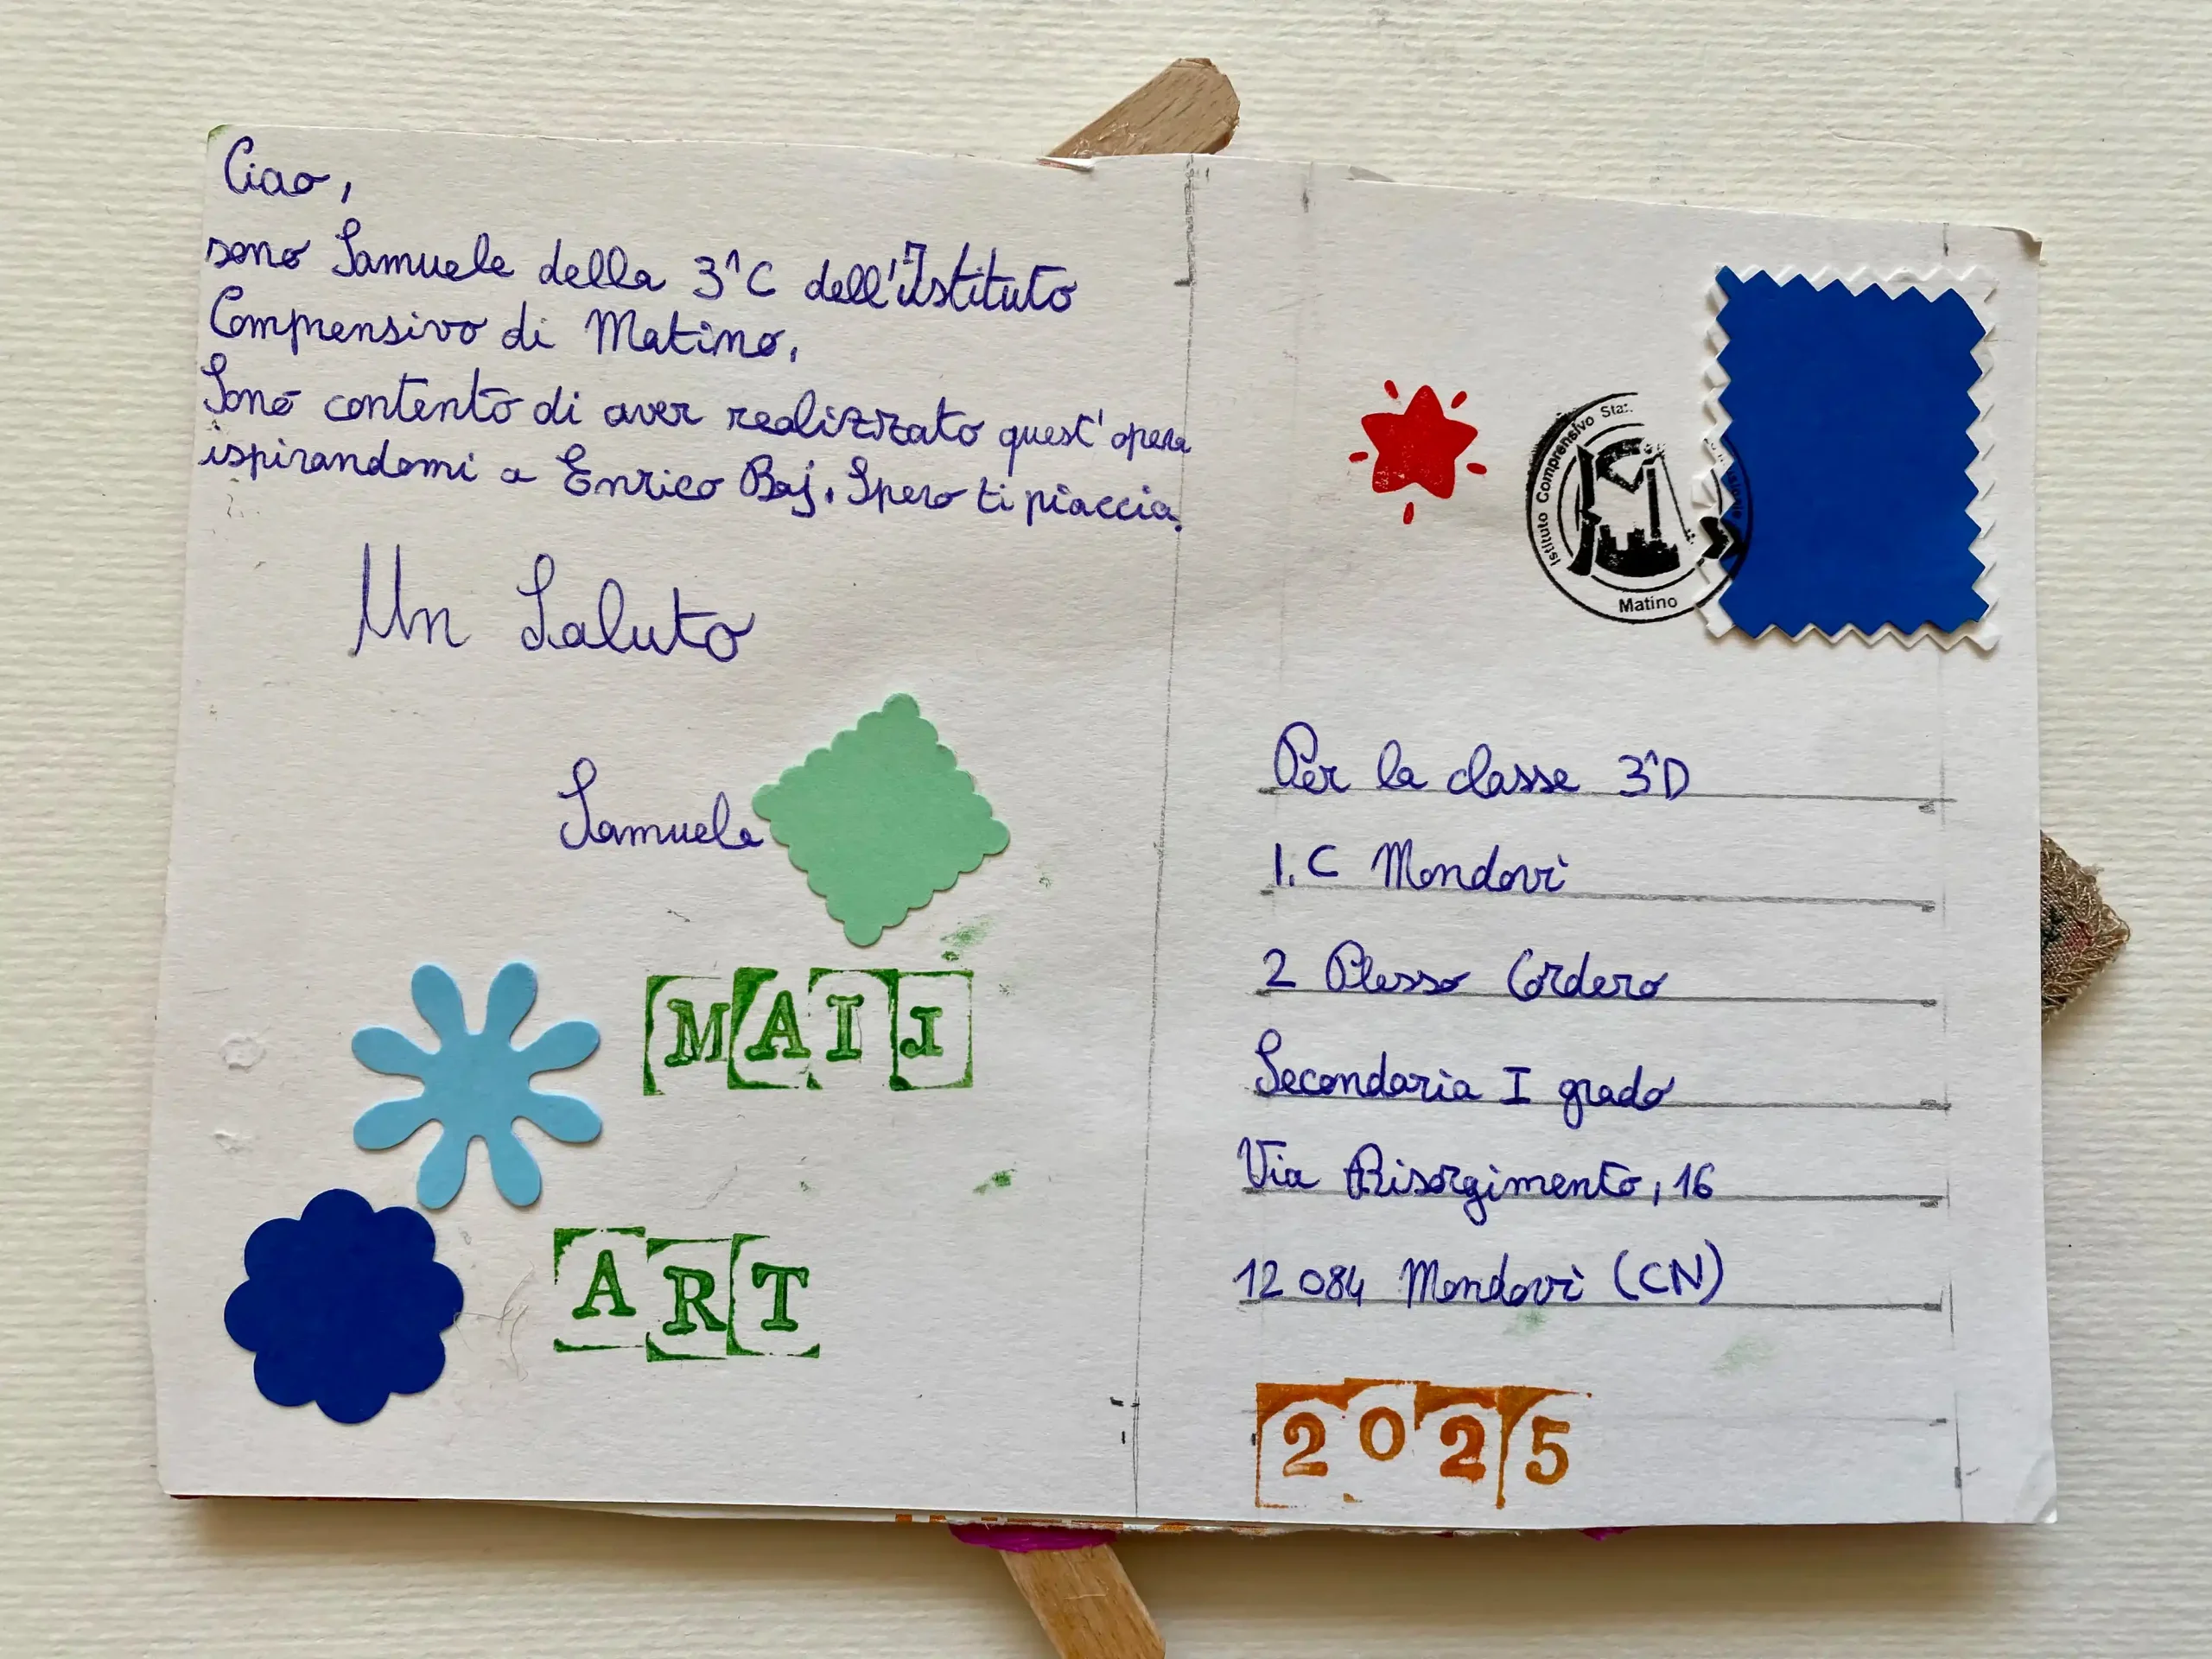 Ciao,
sono Samuele della 3^C dell'Istituto
Comprensivo di Matino.
Sono contento di aver realizzato quest'opera
ispirandomi a Enrico Baj. Spero ti piaccia.
Un Saluto
Samuele
MAIL
ART
Istituto Comprensivo
Matino
Per la classe 3^D
I.C Mondovì
2 Plesso Cordero
Secondaria I grado
Via Risorgimento, 16
12084 Mondovì (CN)
2025